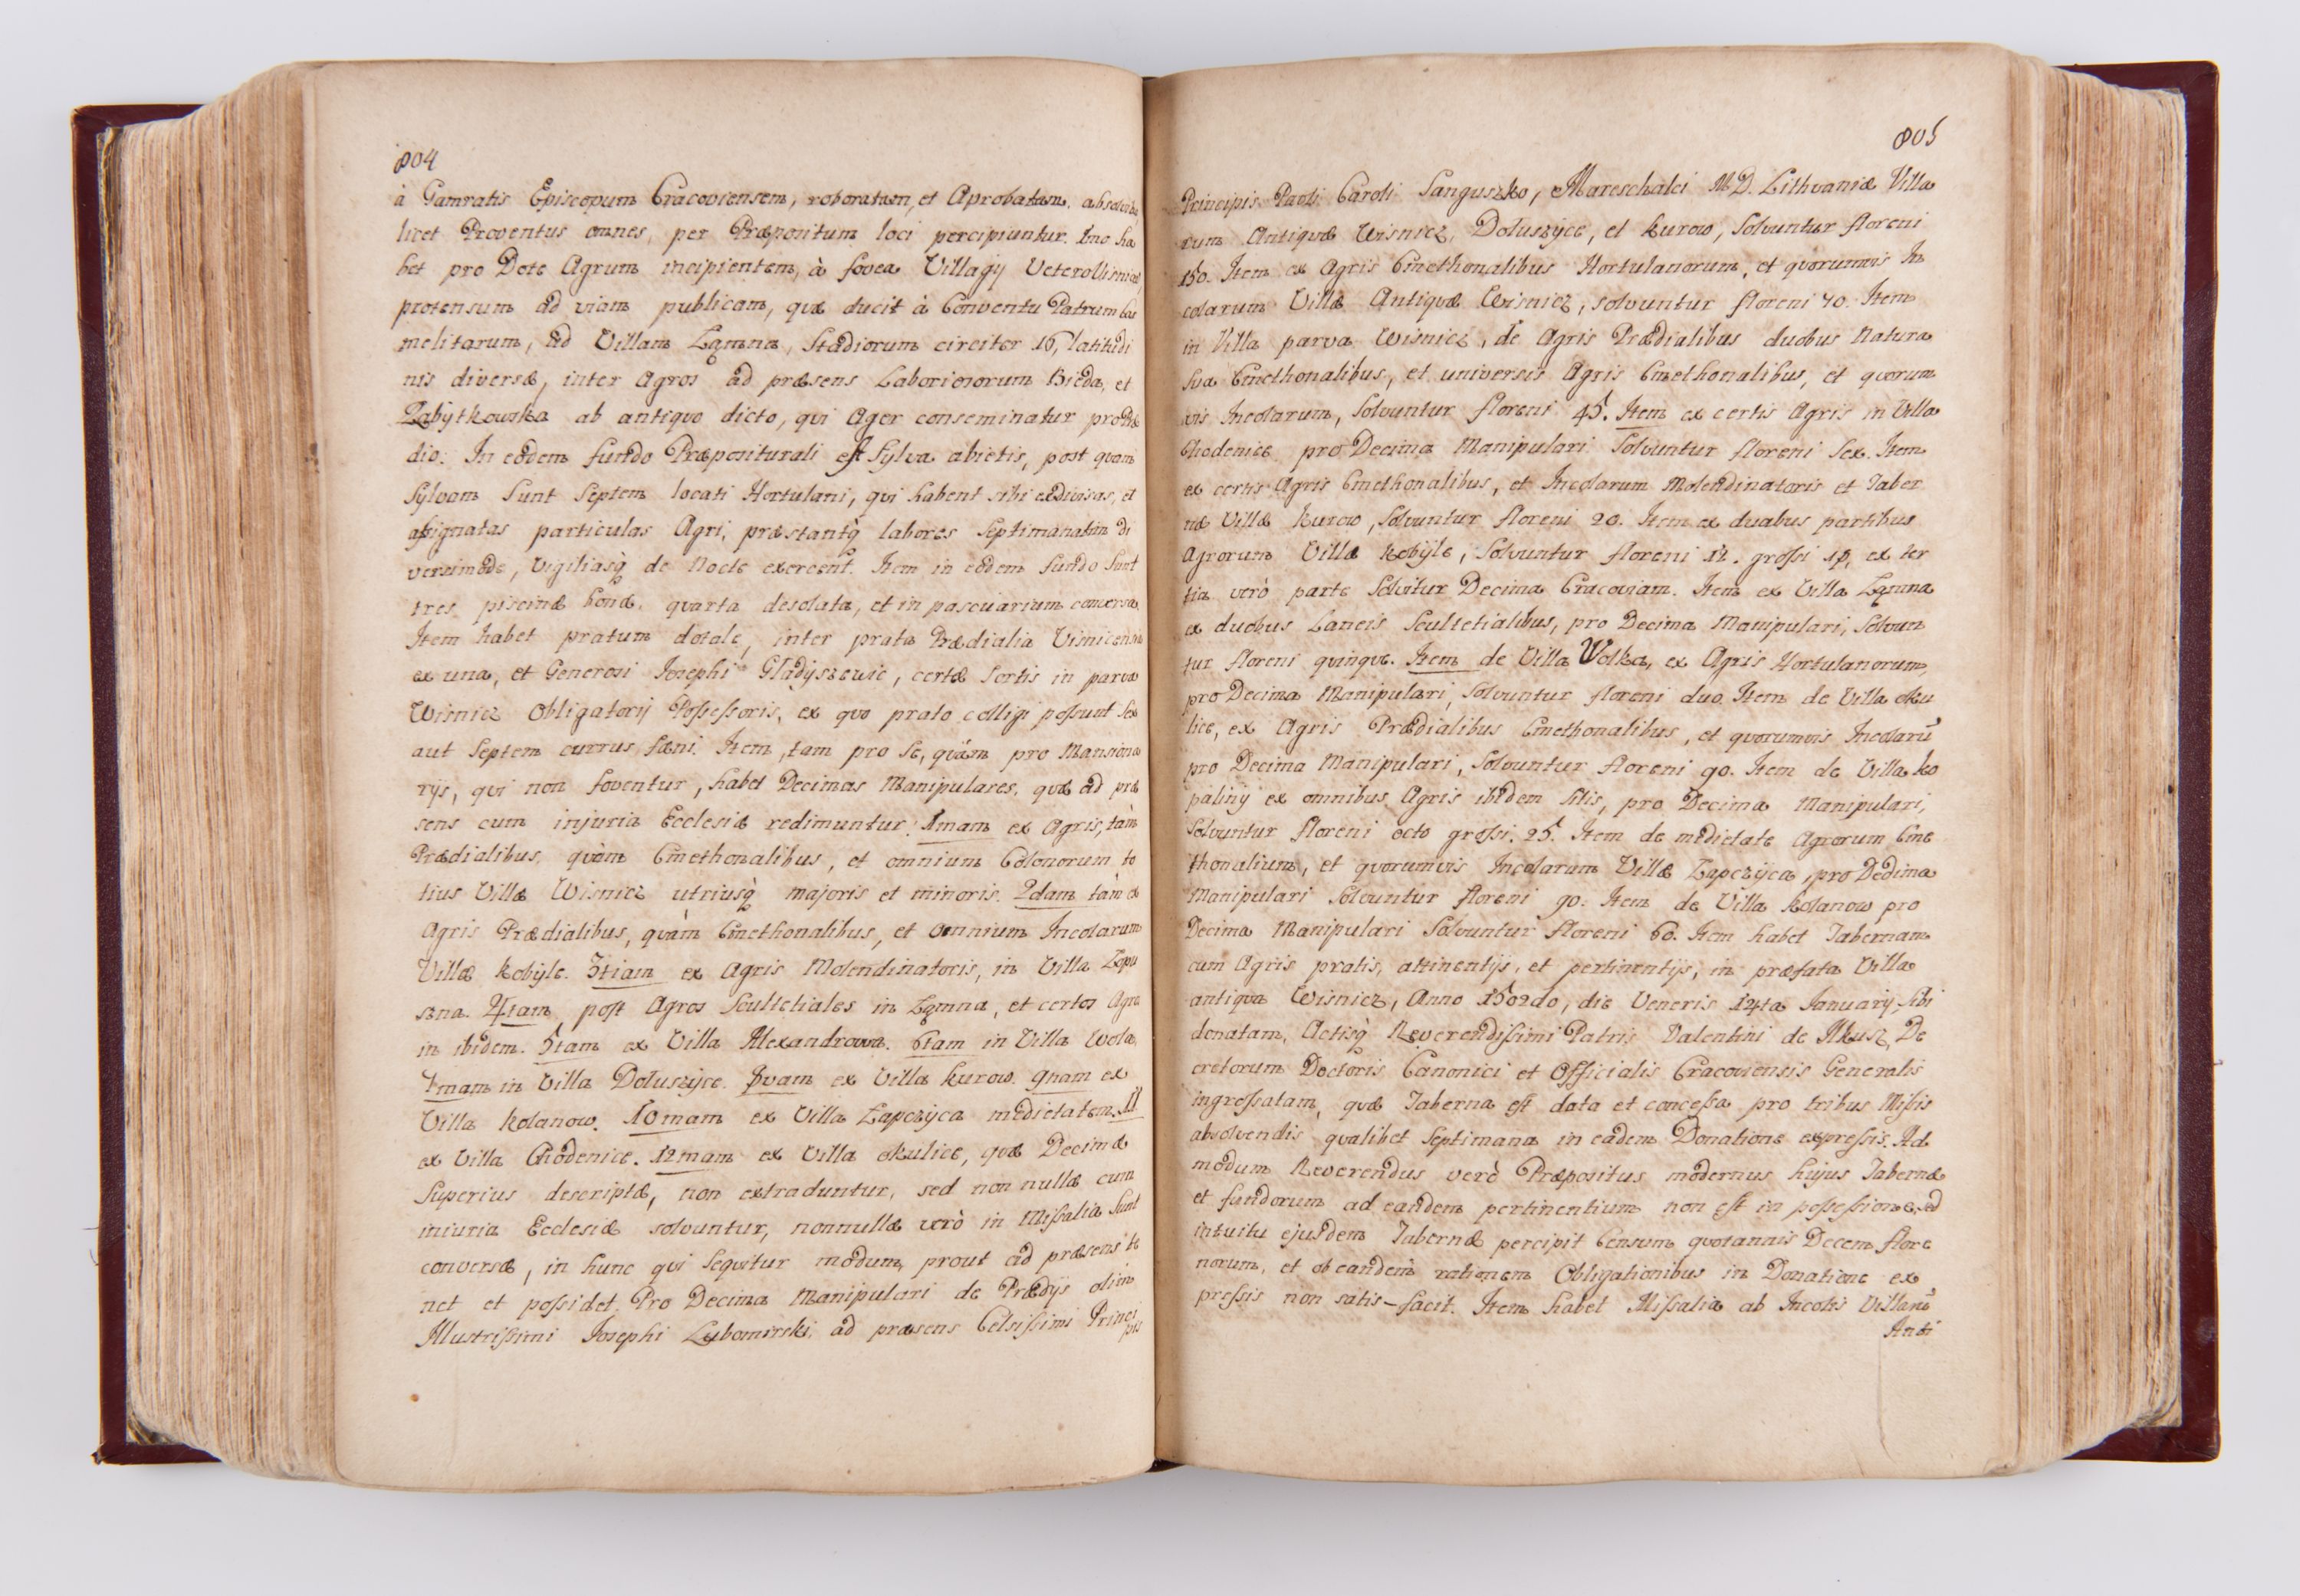 804
à Gamratis Episcopum Cracoviensem, roboratam, et Aprobatam
licet Proventus omnes, per Præpositum loci percipiuntur. Imo ha
bet pro Dote Agrum incipientem, à fovea Villagij
protensum ad viam publicam, quæ ducit à Conventu Patrum Car
melitarum, ad Villam Łąmna, Stadiorum circiter 16, latitudi
nis diversæ, inter Agros ad præsens Laboriosorum Bieda, et
Zabytkowska ab antiquo dicto, qui Ager conseminatur pro Præ
dio. In eodem fundo Præpositurali est Sylva abietis, post quam
Sylvam Sunt Septem locati Hortulani, qui habent sibi exdivisas, et
assignatas particulas Agri, præstantq̀ labores Septimanatim di
versimode, Vigiliasq̀ de Nocte exercent. Item in eodem fundo Sunt
tres piscinæ bonæ, quarta desolata, et in pascuarium conversa.
Item habet pratum dotale, inter prata Prædialia Visnicensia
ex una, et Generosi Josephi Gładyszewic, certæ Sortis in parva
Wisnicz Obligatorij Possessoris, ex quo prato colligi possunt Sex
aut Septem currus fæni. Item, tam pro Se, quàm pro Mansiona
rijs, qui non foventur, habet Decimas Manipulares, quæ ad præ
sens cum injuria Ecclesiæ redimuntur: 1mam ex Agris, tàm
Prædialibus, quàm Cmethonalibus, et omnium Colonorum to
tius Villæ Wisnicz utriusq̀ majoris et minoris. 2dam tàm ex
Agris Prædialibus, quàm Cmethonalibus, et omnium Incolarum
Villæ Kobÿle. 3tiam ex Agris Molendinatoris, in Villa Łapu
szna. 4tam, post Agros Scultetiales in Łąmna, et certos Agros
in ibidem. 5tam ex Villa Alexandrowa. 6tam in Villa Wola,
7mam in Villa Dołuszÿce. 8vam ex Villa Kurow. 9nam ex
Villa Kolanow. 10mam ex Villa Łapczÿca medietatem. 11
ex Villa Chodenice. 12mam ex Villa Okulice, quæ Decimæ
Superius descriptæ, non extraduntur, sed non nullæ cum
iniuria Ecclesiæ solvuntur, nonnullæ verò in Missalia Sunt
conversæ, in hunc qui Sequitur modum, prout ad præsens te
net et possidet. Pro Decima Manipulari de Prædijs olim
Illustrissimi Josephi Lubomirski, ad præsens Celsissimi Princi
pis
805
Principis Pauli Caroli Sanguszko, Mareschalci M.D. Lithvaniæ Villa
rum Antiquæ Wisnicz, Dołuszÿce, et Kurow, Solvuntur floreni
150. Item ex Agris Cmethonalibus Hortulanorum, et quorumvis In
colarum Villæ Antiquæ Wisnicz, solvuntur floreni 70. Item
in Villa parva Wisnicz, de Agris Prædialibus duobus Natura
Sua Cmethonalibus, et universis Agris Cmethonalibus, et quorum
vis Incolarum, Solvuntur floreni 45. Item ex certis Agris in Villa
Chodenice pro Decima Manipulari Solvuntur floreni Sex. Item
ex certis Agris Cmethonalibus, et Incolarum Molendinatoris et Taber
næ Villæ Kurow, Solvuntur floreni 20. Item ex duabus partibus
Agrorum Villæ Kobÿle, Solvuntur floreni 12. grossi 18, ex ter
tia verò parte Solvitur Decima Cracoviam. Item ex Villa Łąmna
ex duobus Laneis Scultetialibus, pro Decima Manipulari, Solvun
tur floreni quinque. Item de Villa Wolka, ex Agris Hortulanorum,
pro Decima Manipulari, Solvuntur floreni duo. Item de Villa Oku
lice, ex Agris Prædialibus Cmethonalibus, et quorumvis Incolarū
pro Decima Manipulari, Solvuntur floreni 90. Item de Villa Ko
palinÿ ex omnibus Agris ibidem Sitis, pro Decima Manipulari,
Solvuntur floreni octo grossi. 25. Item de medietate Agrorum Cme
thonalium, et quorumvis Incolarum Villæ Łapczÿca, pro Dedima
Manipulari Solvuntur floreni 90. Item de Villa Kolanow pro
Decima Manipulari Solvuntur floreni 60. Item habet Tabernam
cum Agris pratis, attinentijs, et pertinentijs, in præfata Villa
antiqua Wisnicz, Anno 1502do, die Veneris 14ta Januarij, Sibi
donatam, Actisq̀ Reverendissimi Patris Valentini de Ilkusz, De
cretorum Doctoris Canonici et Officialis Cracoviensis Generalis
ingrossatam, quæ Taberna est data et concessa pro tribus Missis
absolvendis qualibet Septimana in eadem Donatione expressis. Ad
modum Reverendus verò Præpositus modernus hujus Tabernæ
et fundorum ad eandem pertinentium non est in possessione, sed
intuitu ejusdem Tabernæ percipit Censum quotannis Decem flore
norum, et ob eandem rationem Obligationibus in Donatione ex
pressis non satis-facit. Item habet Missalia ab Incolis Villarū
Anti